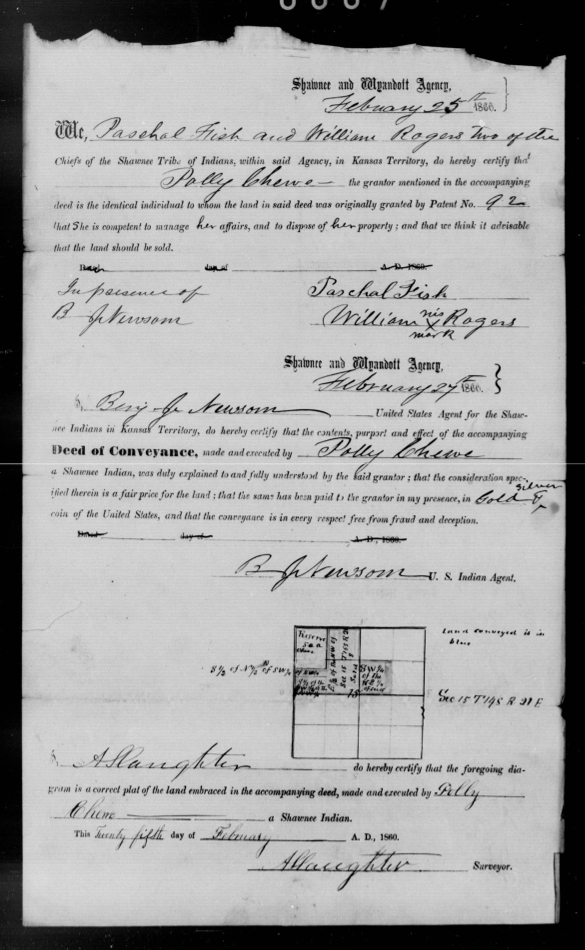 Shawnee and Wyandott Agency,
February 25th 1860.
We, Paschal Fish and William Rogers two of the
Chiefs of the Shawnee Tribe of Indians, within said Agency, in Kansas Territory, do hereby certify that
Polly Chewe — the grantor mentioned in the accompanying
deed is the identical individual to whom the land in said deed was originally granted by Patent No. 92
that She is competent to manage her affairs, and to dispose of her property; and that we think it advisable
that the land should be sold.
Dated day of A. D. 1860.
In presence of
B J Newsom
Paschal Fish
William his x mark Rogers
Shawnee and Wyandott Agency,
February 27th 1860.
I, Benj J Newsom United States Agent for the Shaw-
nee Indians in Kansas Territory, do hereby certify that the contents, purport and effect of the accompanying
Deed of Conveyance, made and executed by Polly Chewe
a Shawnee Indian, was duly explained to and fully understood by the said grantor; that the consideration spec-
ified therein is a fair price for the land; that the same has been paid to the grantor in my presence, in Gold & Silver
coin of the United States, and that the conveyance is in every respect free from fraud and deception.
Dated day of A. D., 1860.
B J Newsom U. S. Indian Agent.
Land conveyed is in
blue
Reserve
S W ¼
of the
15
Sec 15 T 14 S R 21 E
I, A Slaughter do hereby certify that the foregoing dia-
gram is a correct plat of the land embraced in the accompanying deed, made and executed by Polly
Chewe a Shawnee Indian.
This Twenty fifth day of February A. D., 1860.
A Slaughter Surveyor.